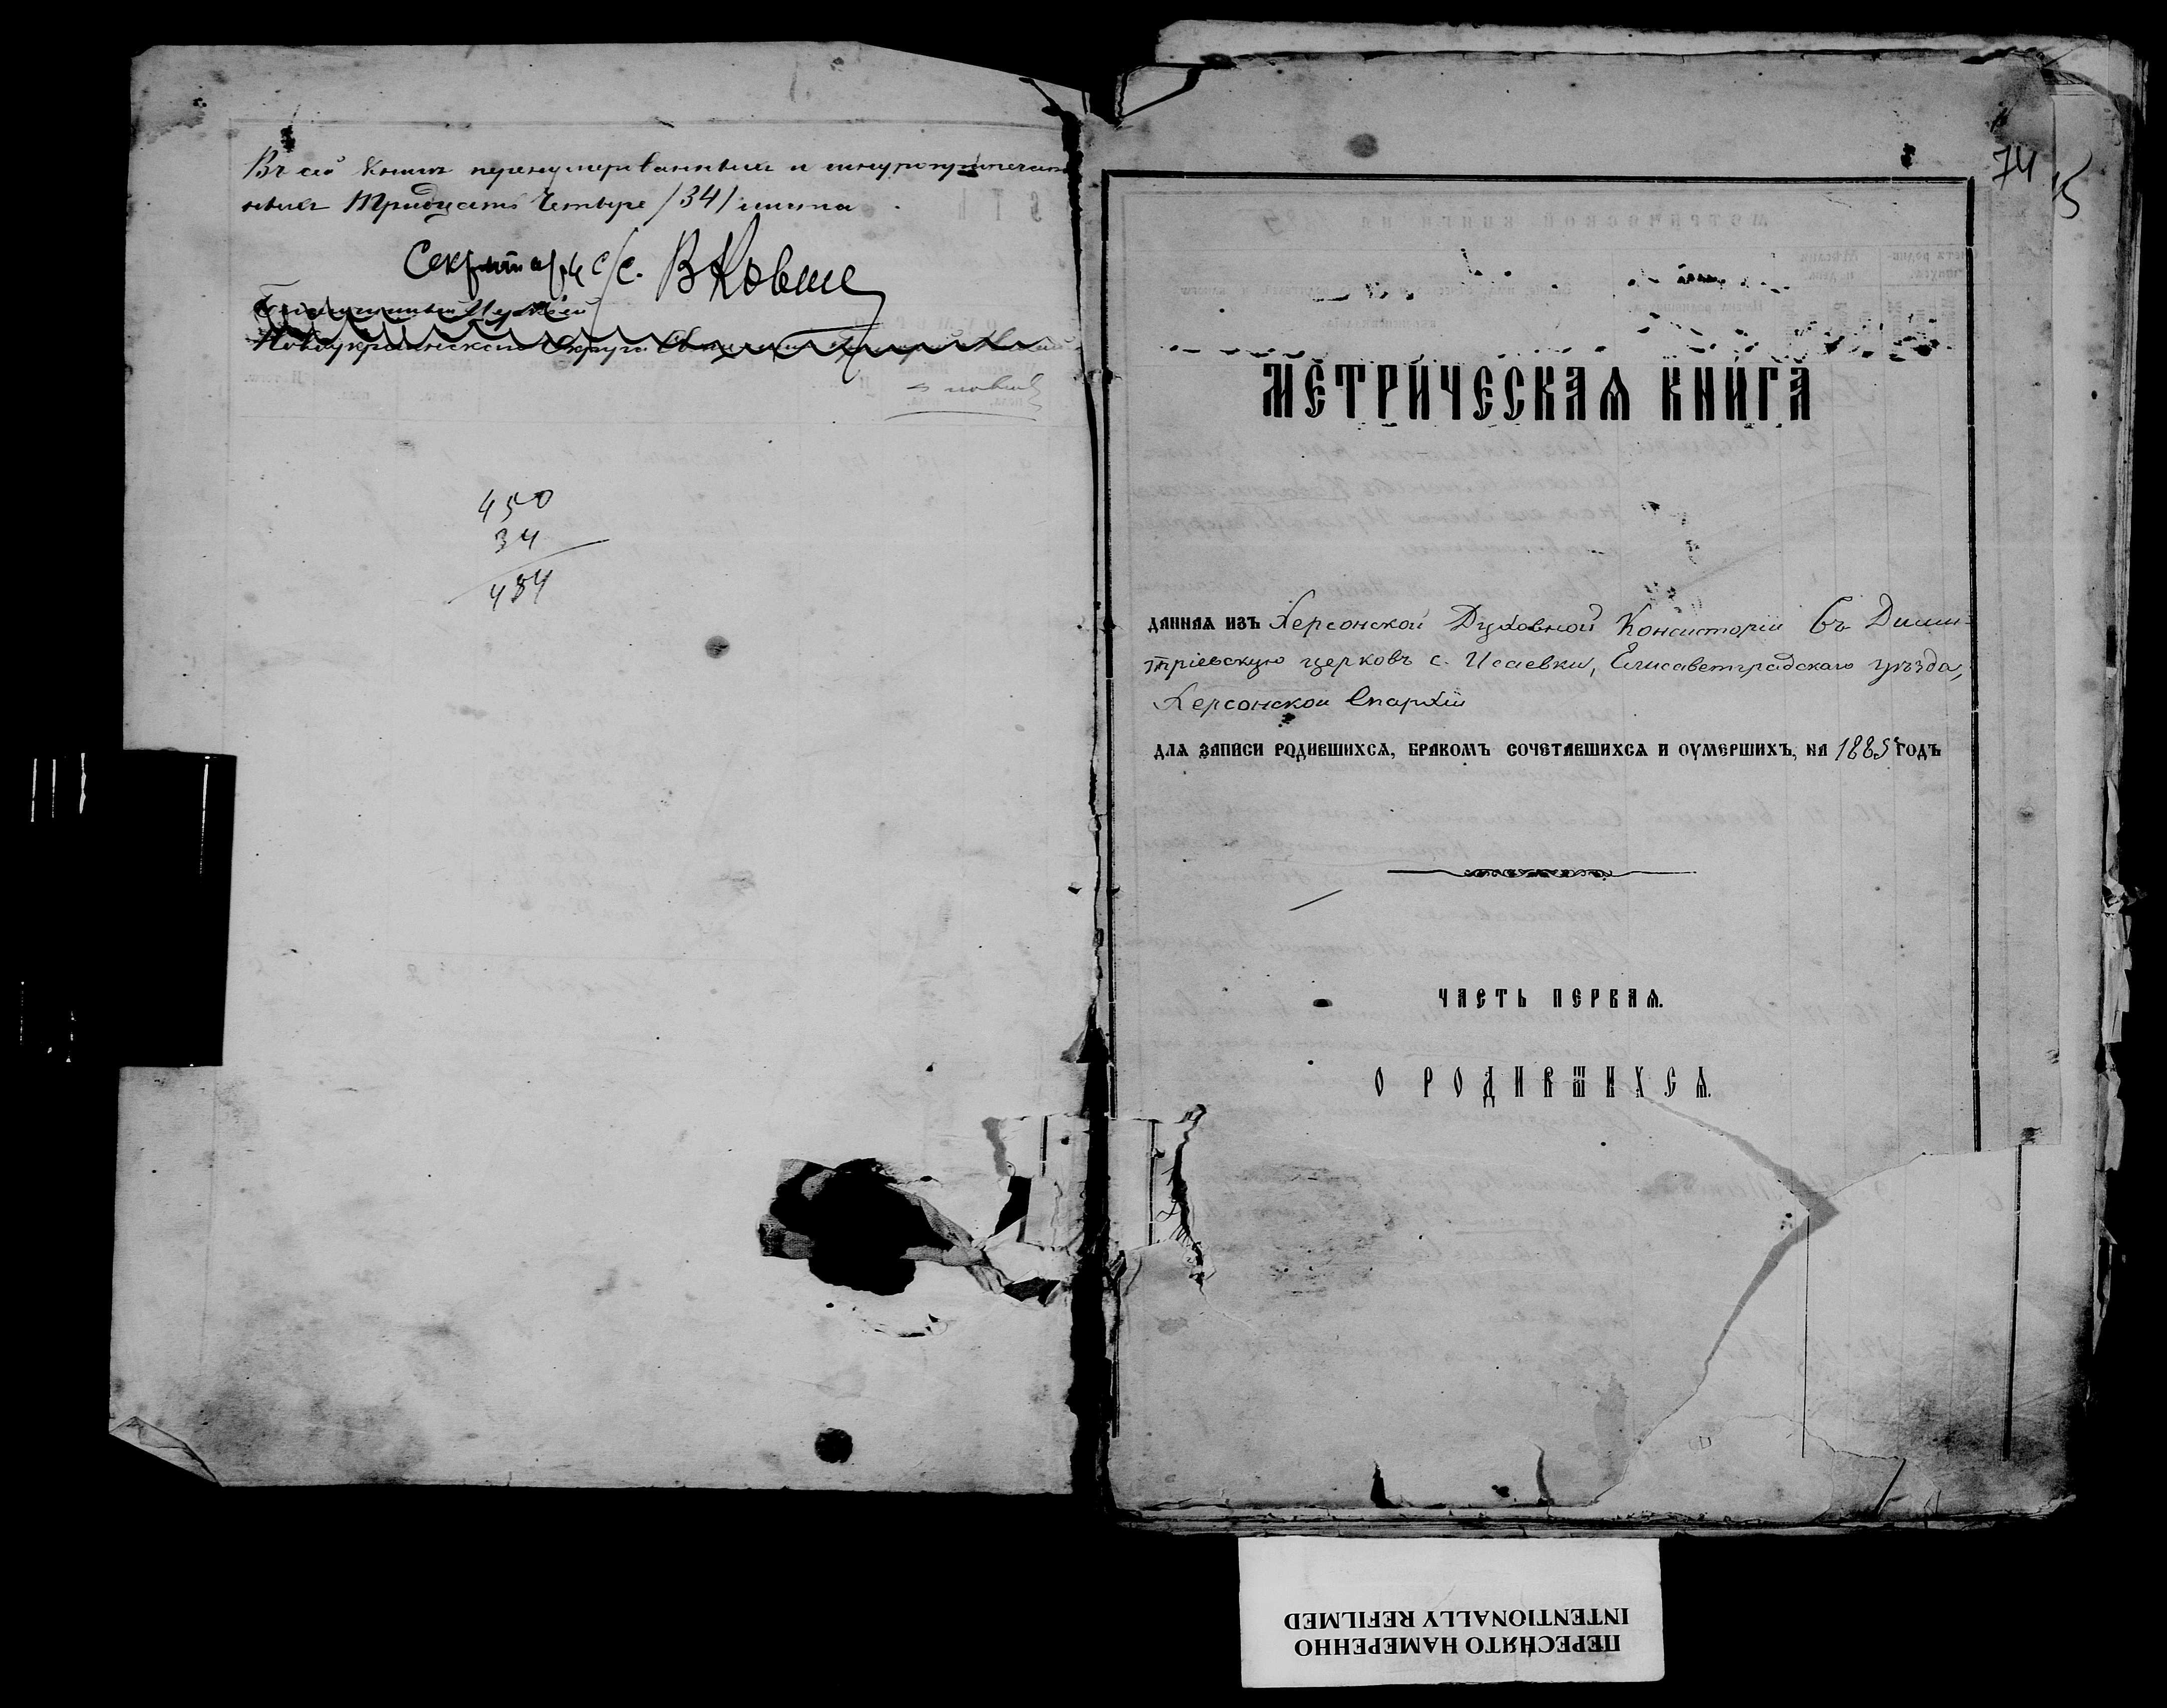 Въ сей книгѣ перенумерованныхъ и шнуроприпечатан
ныхъ Тридцать Четыре /34/ листа
Секретарь с/с. В Ковше
Новоукраинскаго Округа
450
34
484
74
15
МЕТРИЧЕСКАѦ КНИГА
ДАННАѦ ИЗЪ Херсонской Духовной Консисторіи Въ Дими-
тріевскую церковь с. Исаевки, Елисаветградскаго уѣзда,
Херсонской Епархіи
ДЛѦ ЗАПИСИ РОДИВШИХСѦ, БРАКОМЪ СОЧЕТАВШИХСѦ И ОУМЕРШИХЪ, НА 1885 ГОДЪ
ЧАСТЬ ПЕРВАѦ.
О РОДИВШИХСѦ.
ПЕРЕСНЯТО НАМЕРЕННО
INTENTIONALLY REFILMED